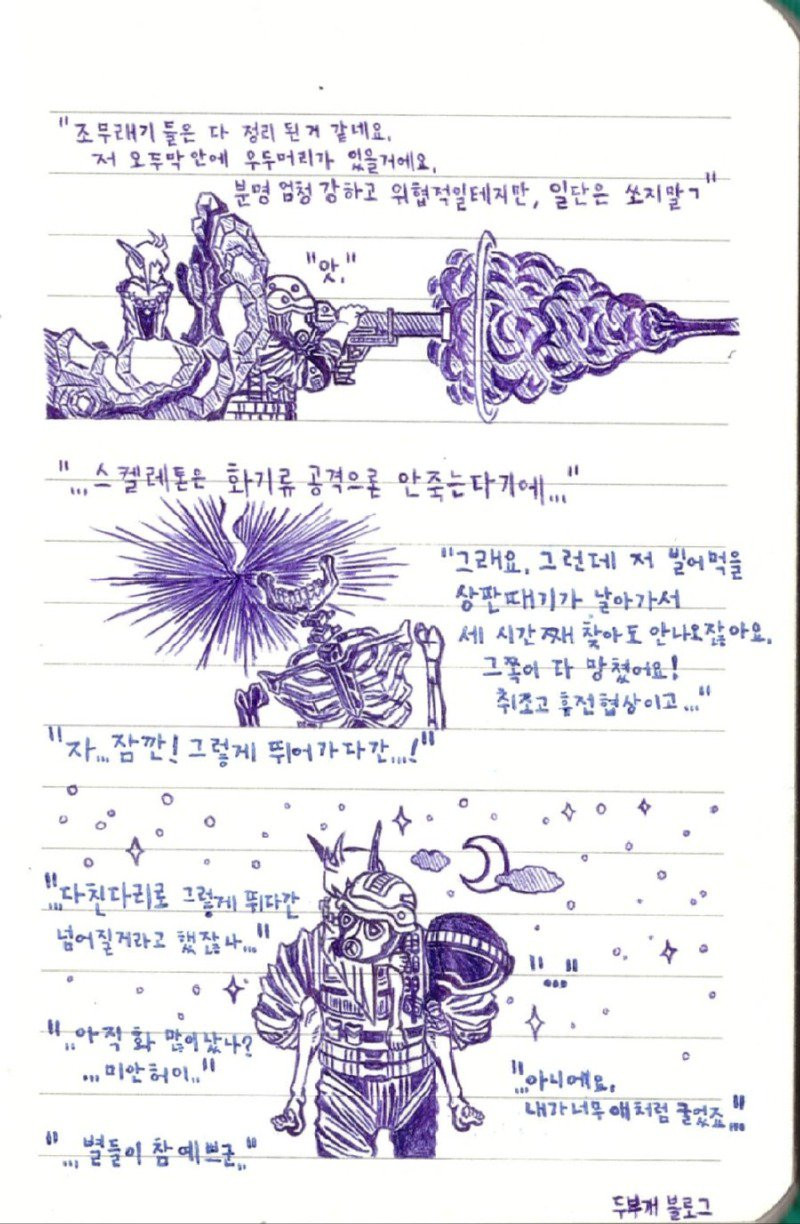 "조무래기들은 다 정리 된거 같네요.
저 오두막안에 우두머리가 있을거에요.
분명 엄청 강하고 위협적일테지만, 일단은 쏘지말ㄱ"
"앗."
"...스켈레톤은 화기류 공격으론 안죽는다기에..."
"그래요. 그런데 저 빌어먹을
상판때기가 날아가서
세 시간째 찾아도 안나오잖아요.
그쪽이 다 망쳤어요!
취조고 휴전협상이고..."
"자...잠깐! 그렇게 뛰어가다간...!"
"...다친다리로 그렇게 뛰다간
넘어질거라고 했잖나..."
"..."
"..아직 화 많이 났나?
...미안허이.."
"...아니에요.
내가 너무 애처럼 굴었죠..."
"... 별들이 참 예쁘군.."
두부개 블로그